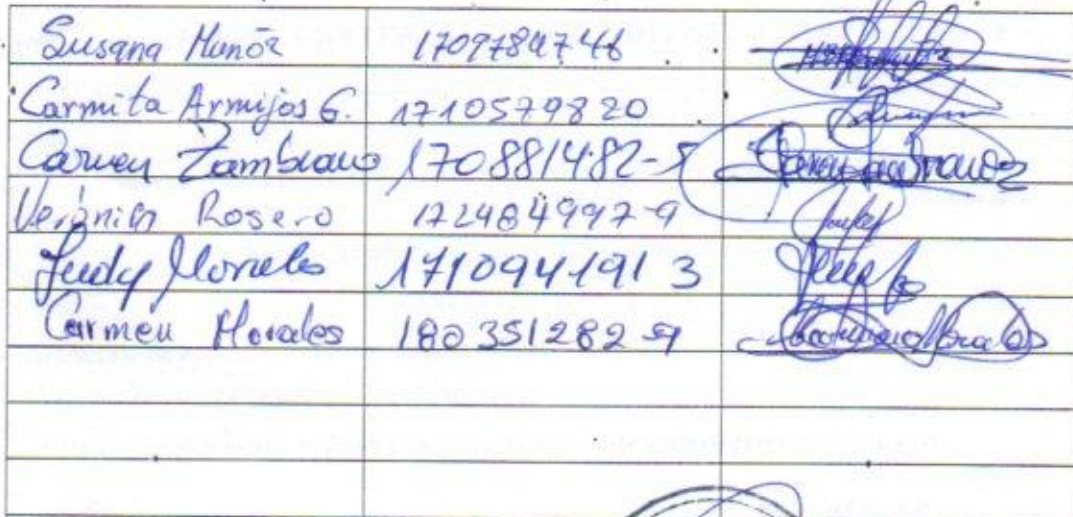 Susana Munóz 1709784746
Carmita Armijos G. 1710579820
Carmen Zambrano 170881482-5
Verónica Rosero 172484997-9
Judy Morales 171094191 3
Carmen Morales 180351282-9